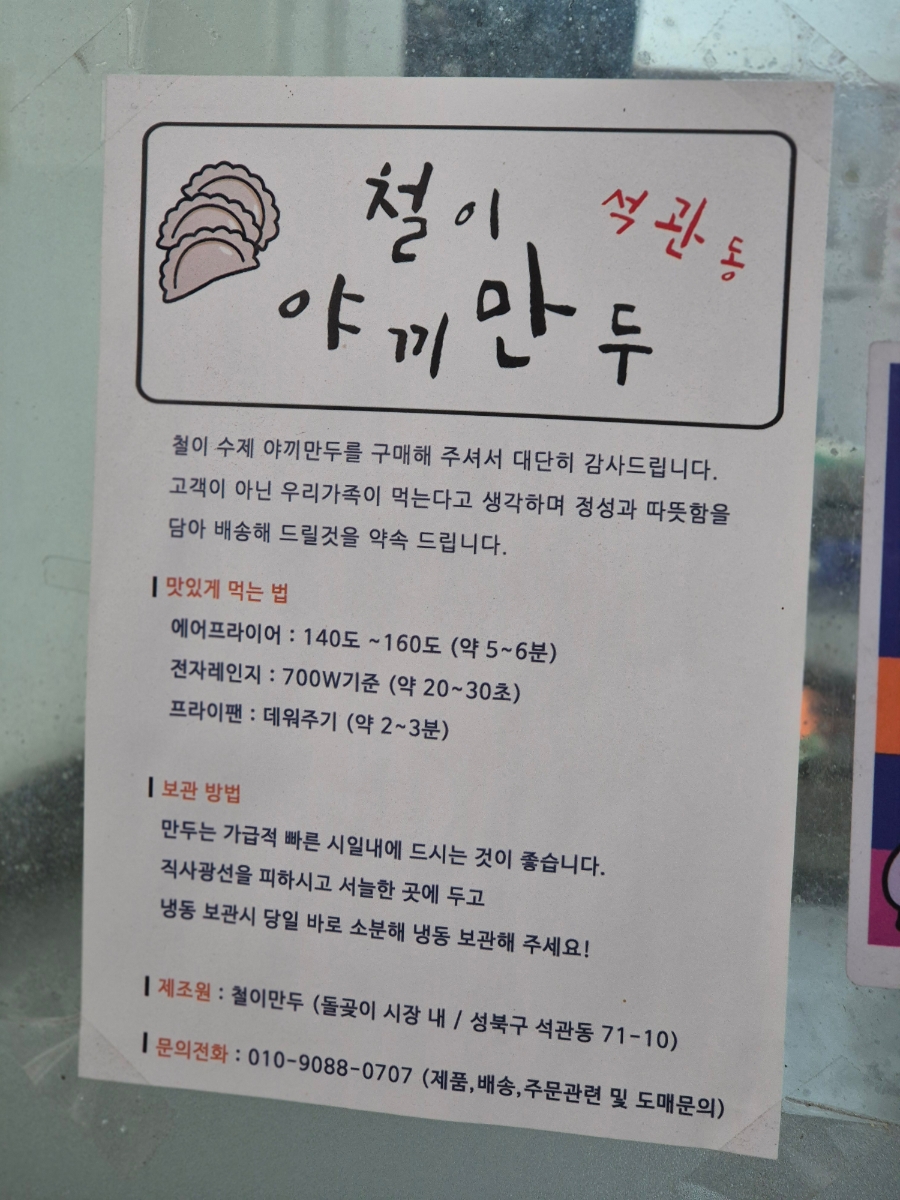 철이
석관동
야끼만두
철이 수제 야끼만두를 구매해 주셔서 대단히 감사드립니다.
고객이 아닌 우리가족이 먹는다고 생각하며 정성과 따뜻함을
담아 배송해 드릴것을 약속 드립니다.
맛있게 먹는 법
에어프라이어 : 140도 ~160도 (약 5~6분)
전자레인지 : 700W기준 (약 20~30초)
프라이팬 : 데워주기 (약 2~3분)
보관 방법
만두는 가급적 빠른 시일내에 드시는 것이 좋습니다.
직사광선을 피하시고 서늘한 곳에 두고
냉동 보관시 당일 바로 소분해 냉동 보관해 주세요!
제조원 : 철이만두 (돌곶이 시장 내 / 성북구 석관동 71-10)
문의전화 : 010-9088-0707 (제품,배송,주문관련 및 도매문의)